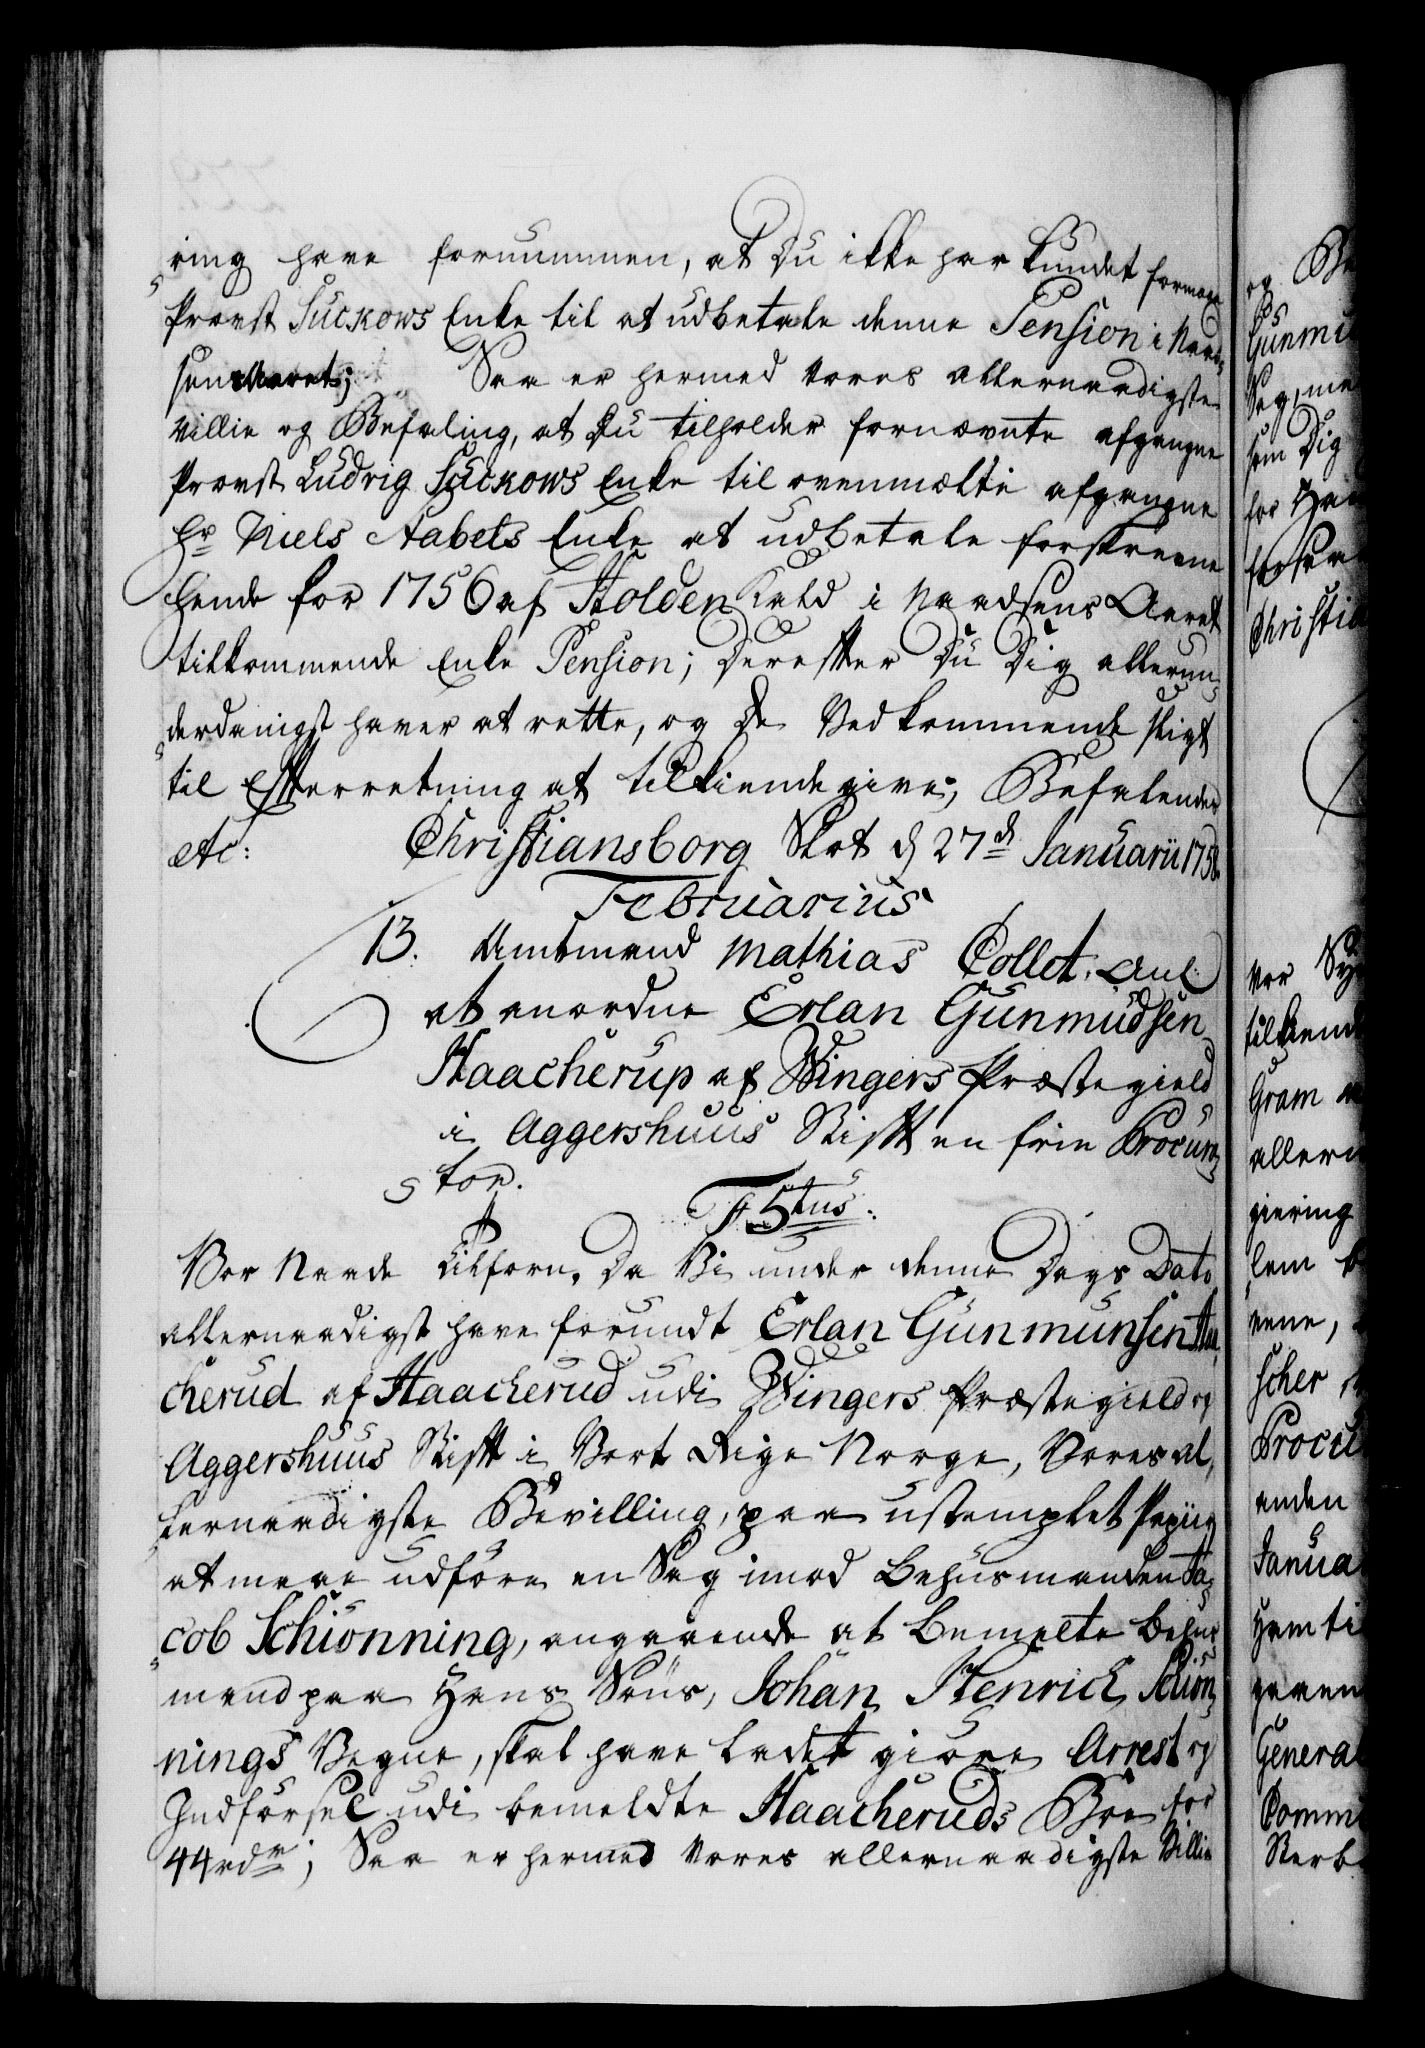 ring have fornummen, at Du ikke har kundet formaae
Provst Suckows Enke til at udbetale denne Pension i Naad-
sens Aaret; Saa er hermed Vores allernaadigste
Villie og Befaling, at Du tilholder fornævnte afgangne
Provst Ludvig Suckows Enke til ovenmælte afgangne
Hr Niels Aabels Enke at udbetale forskrevne
hende for 1756 af Holden Kald i Naadsens Aaret
tilkommende Enke Pension; Derefter Du Dig allerun-
derdanigst haver at rette, og De Vedkommende sligt
til Efterretning at tilkiendegive; Befalende
etc: Christiansborg Slot d 27d Januarii 1758.
Februarius
13. Amtmand Mathias Collet, Anl:
at anordne Erlan Gunmudsen
Haacherup af Wingers Præstegield
i Aggershuus Stift en frie Procura-
tor.
F 5tus.
Vor Naade Tilforn. Da Vi under denne Dags Dato
allernaadigst have forundt Erlan Gunmunsen Haa-
cherud af Haacherud udi Wingers Præstegield og
Aggershuus Stift i Vort Rige Norge, Vores al-
lernaadigste Bevilling, paa ustemplet Papiir
at maae udføre en Sag imod Behusmanden Ja-
cob Schiönning, angaaende at bemelte Behus
mand paa Hans Søns, Johan Henrich Schiön-
nings Vegne, skal have ladet giøre Arrest og
Indførsel udi bemeldte Haacheruds Boe for
44 rdr; Saa er hermed Vores allernaadigste Villie